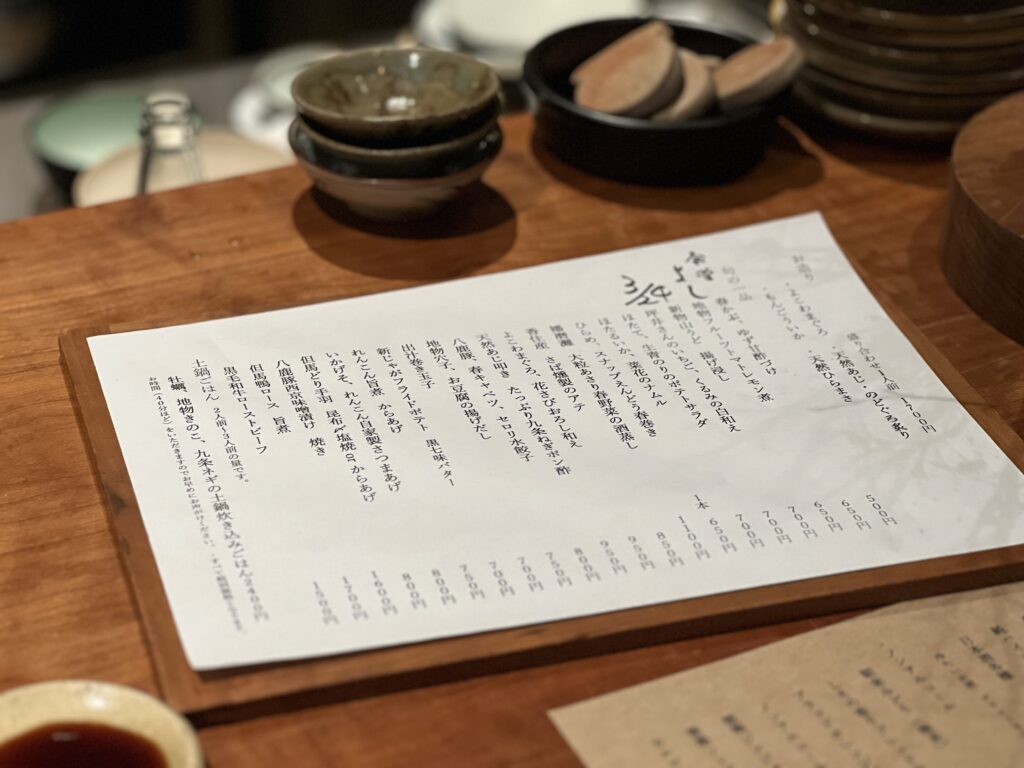 お造り
盛り合わせ1人前 1700円
・よこわまぐろ ・天然あじ、のどぐろ炙り
・もんごういか ・天然ひらまさ
旬の一品
春かぶ、ゆず甘酢づけ 500円
地物フルーツトマトレモン煮 650円
新物山うど 揚げ浸し 650円
坪井さんのいちご、くるみの白和え 700円
ほたて、生青のりのポテトサラダ 700円
ほたるいか、菜花のナムル 700円
ひらめ、スナップえんどう春巻き 1本 650円
播磨灘 大粒あさり春野菜の酒蒸し 1100円
香住産 さば燻製のアテ 850円
よこわまぐろ、花さびおろし和え 950円
天然あじ叩き たっぷり九条ねぎポン酢 950円
八鹿豚、春キャベツ、セロリ水餃子 800円
地物穴子、お豆腐の揚げだし 750円
出汁巻き玉子 700円
新じゃがフライドポテト 黒七味バター 700円
れんこん旨煮 からあげ 750円
いかげそ、れんこん自家製さつまあげ 800円
但馬どり手羽 昆布〆塩焼orからあげ 800円
八鹿豚西京味噌漬け 焼き 1600円
但馬鴨ロース 旨煮 1700円
黒毛和牛ローストビーフ 1500円
土鍋ごはん 2人前~3人前の量です。
牡蠣、地物きのこ、九条ネギの土鍋炊き込みごはん2400円
お時間(40分ほど)をいただきますのでお早めにお声がけください。
食堂
よし
3/24